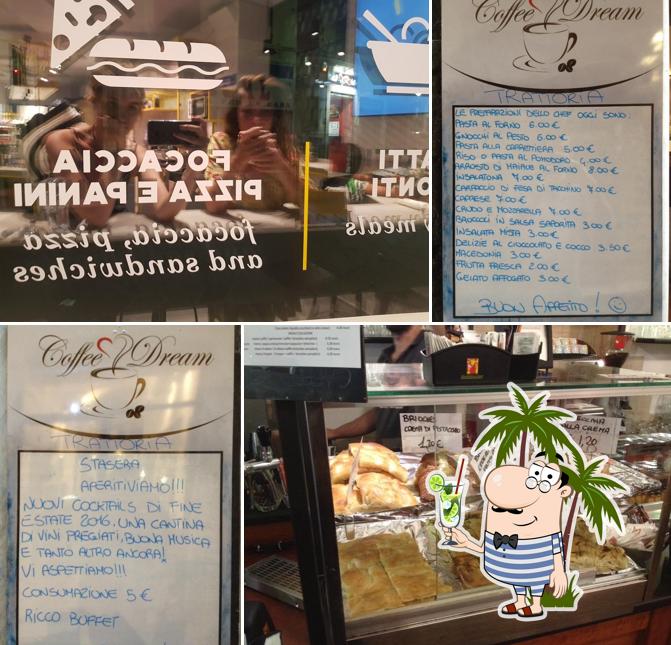 FOCACCIA
PIZZA E PANINI
focaccia, pizza
and sandwiches
ATTI
ONTI
meals
Coffee Dream
TRATTORIA
LE PREPARAZIONI DELLO CHEF OGGI SONO:
PASTA AL FORNO 6.00 €
GNOCCHI AL PESTO 6.00 €
PASTA ALLA CARRETTIERA 5.00 €
RISO O PASTA AL POMODORO 4,00 €
ARROSTO DI MAIALE AL FORNO 8.00 €
INSALATONA 7,00 €
CARPACCIO DI FESA DI TACCHINO 7,00 €
CAPRESE 7.00 €
CRUDO E MOZZARELLA 7.00 €
BROCCOLI IN SALSA SAPORITA 3.00 €
INSALATA MISTA 3.00 €
DELIZIE AL CIOCCOLATO E COCCO 3.50 €
MACEDONIA 3.00 €
FRUTTA FRESCA 2.00 €
GELATO AFFOGATO 3.00 €
BUON APPETITO!
Coffee Dream
TRATTORIA
STASERA
APERITIVIAMO!!!
NUOVI COCKTAILS DI FINE
ESTATE 2016, UNA CANTINA
DI VINI PREGIATI, BUONA MUSICA
E TANTO ALTRO ANCORA!
VI ASPETTIAMO!!!
CONSUMAZIONE 5 €
RICCO BUFFET
BRIOCHE
CREMA DI PISTACCHIO
1,20 €
ALLA CREMA
1,20